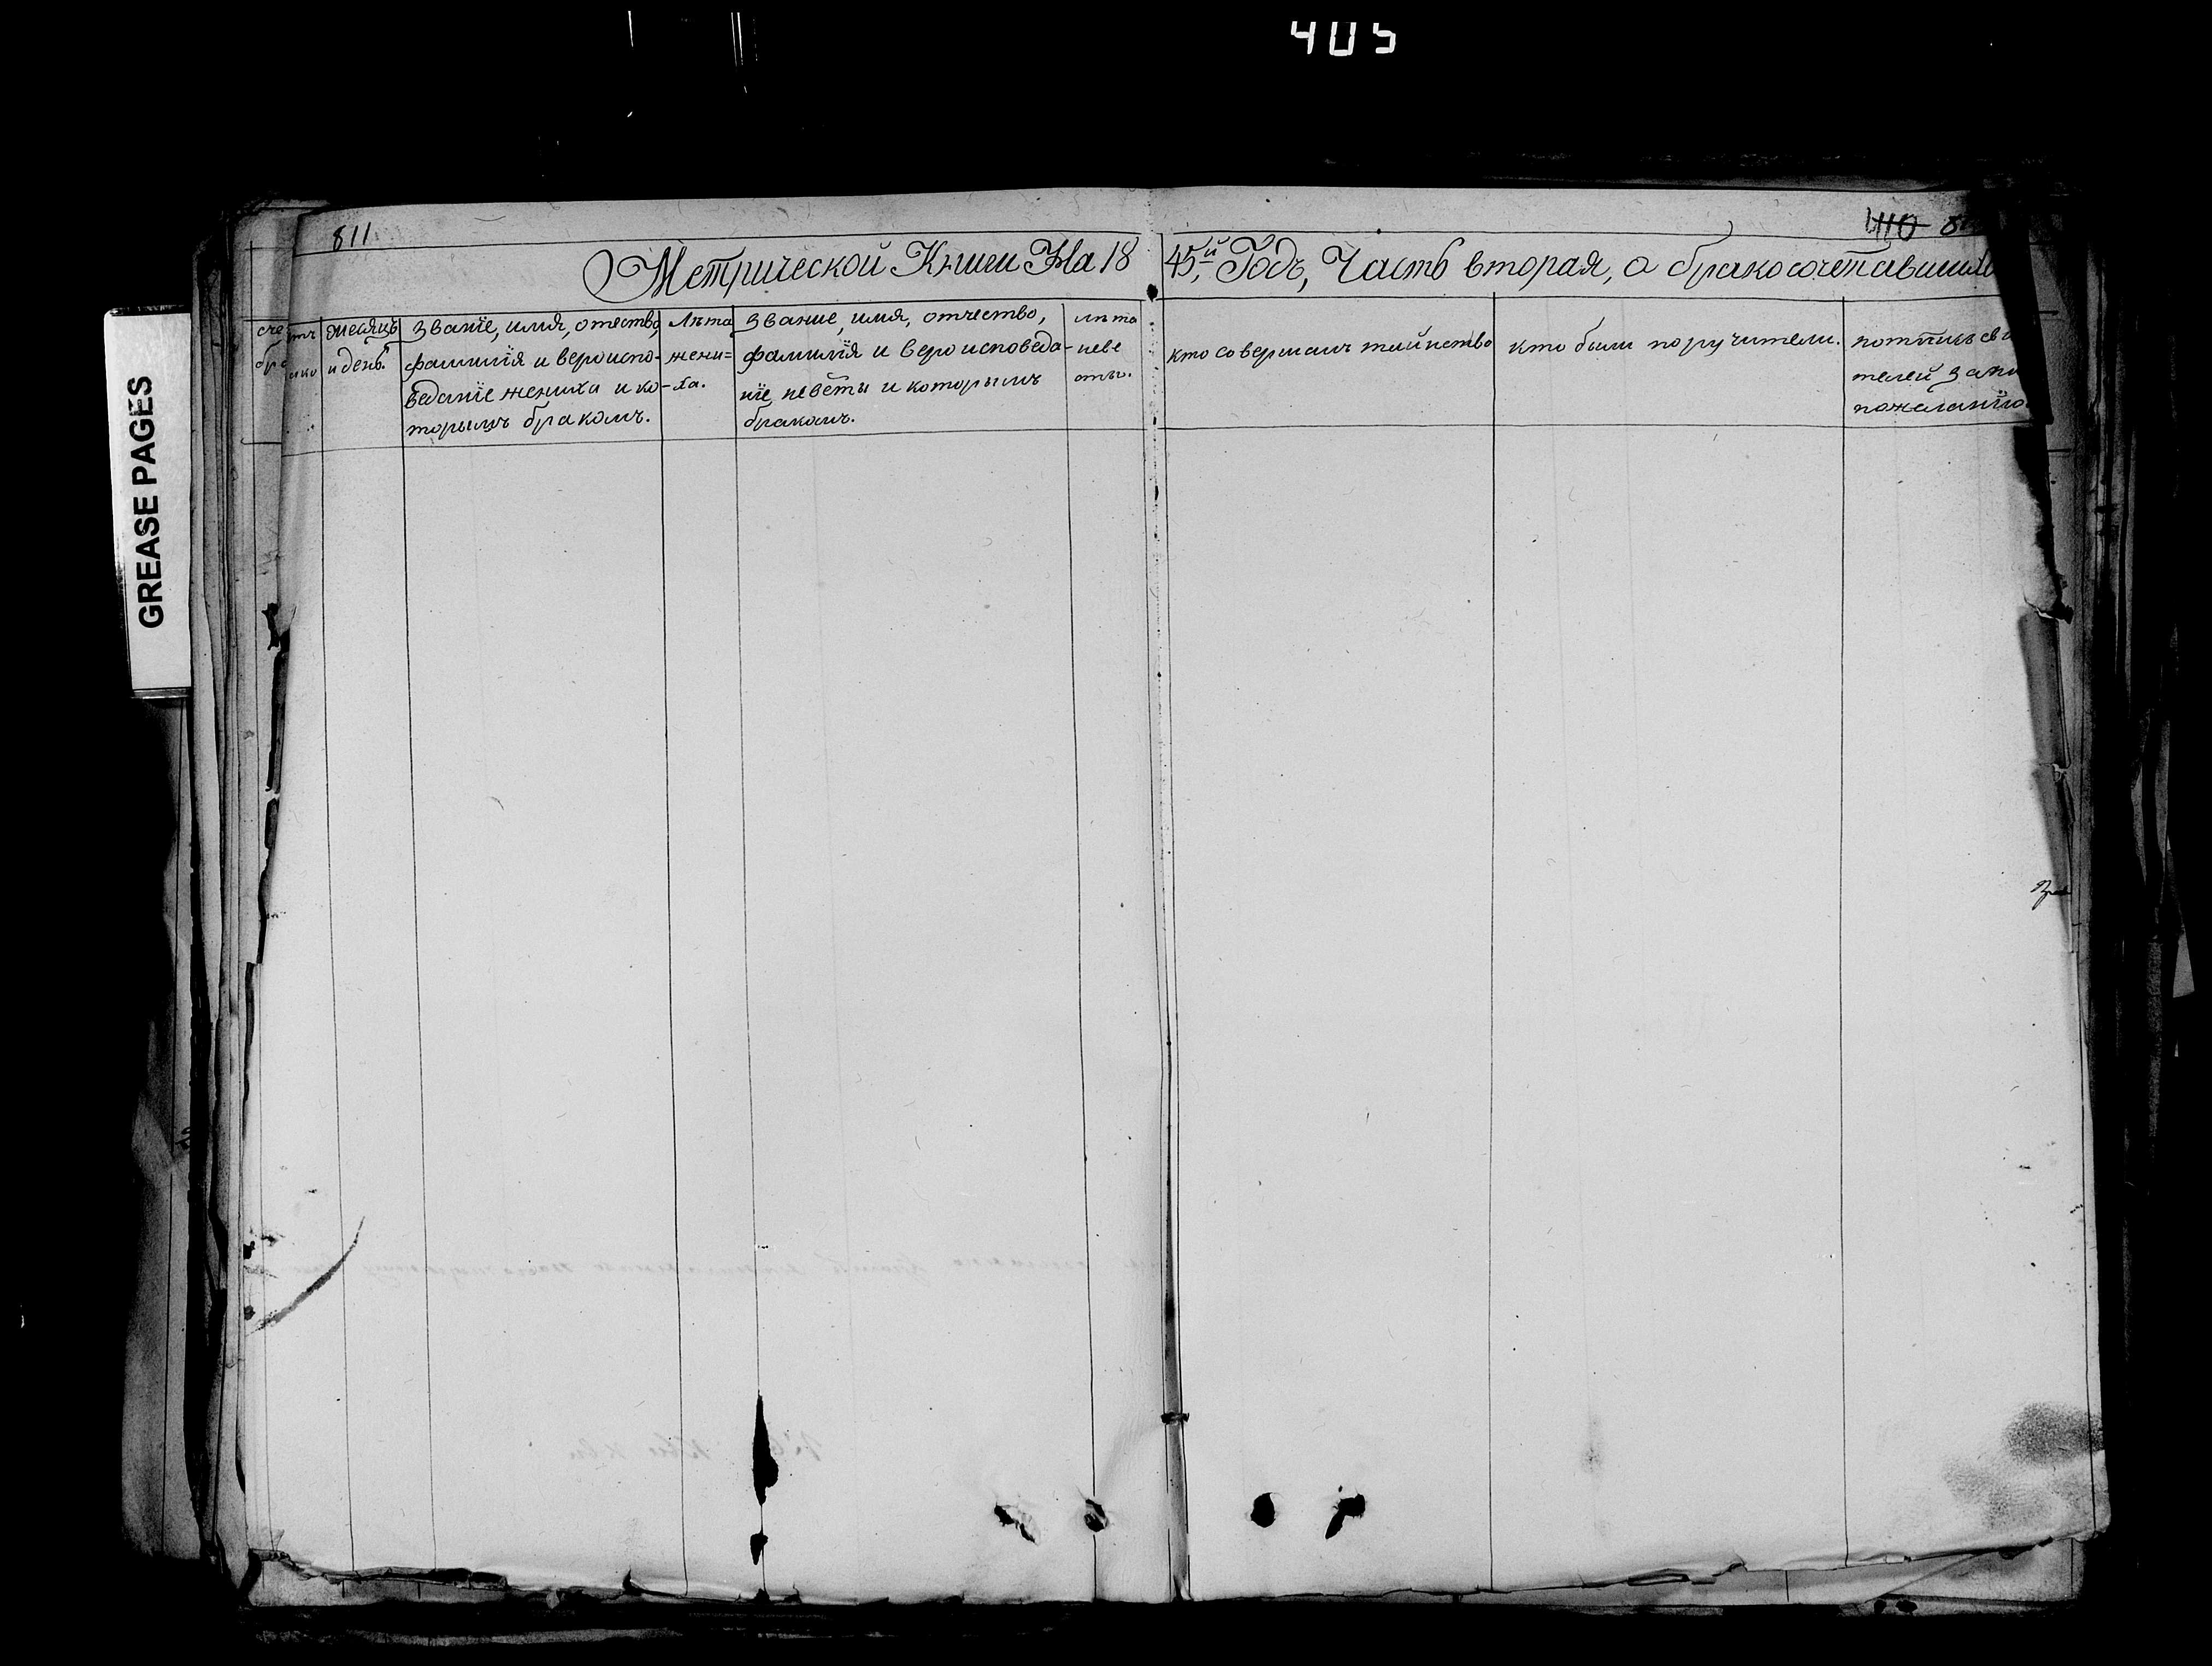 405
GREASE PAGES
811
110
Метрической Книги На 1845й Годъ, Часть вторая, о бракосочетавшихся
месяцъ и день.
званїе, имя, отество,
фамилїя и вероиспо-
веданїе жениха и ко-
торымъ бракомъ.
Лѣта
жени=
ха.
звание, имя, отчество,
фамилїя и вероисповеда-
нїе невѣты и которымъ
бракомъ.
лѣта
неве
сты.
кто совершалъ таинство
кто были поручители.
телей
пожеланїю